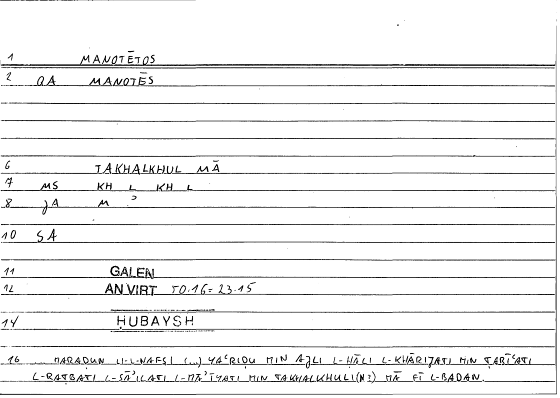 1 MANOTĒTOS
2 QA MANOTĒS
6 TAKHALKHUL MĀ
7 MS KH L KH L
8 JA M ʾ
10 SA
11 GALEN
12 AN VIRT 70.16 = 23.15
14 ḤUBAYSH
16 MARADUN LI-L-NAFSI (...) YAʿRIDU MIN AJLI L-ḤĀLI L-KHĀRIJATI MIN ṬABĪʿATI
L-RAṬBATI L-SĀʾILATI L-MĀʾĪYATI MIN TAKHALKHULI(N?) MĀ FĪ L-BADAN.